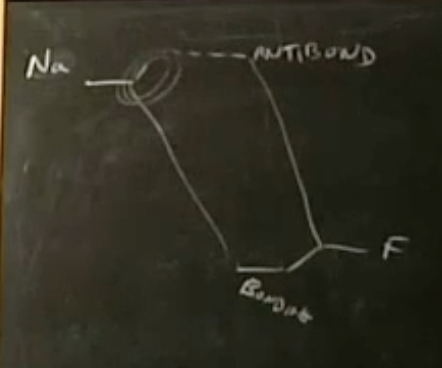 Na
ANTIBOND
F
BONDING